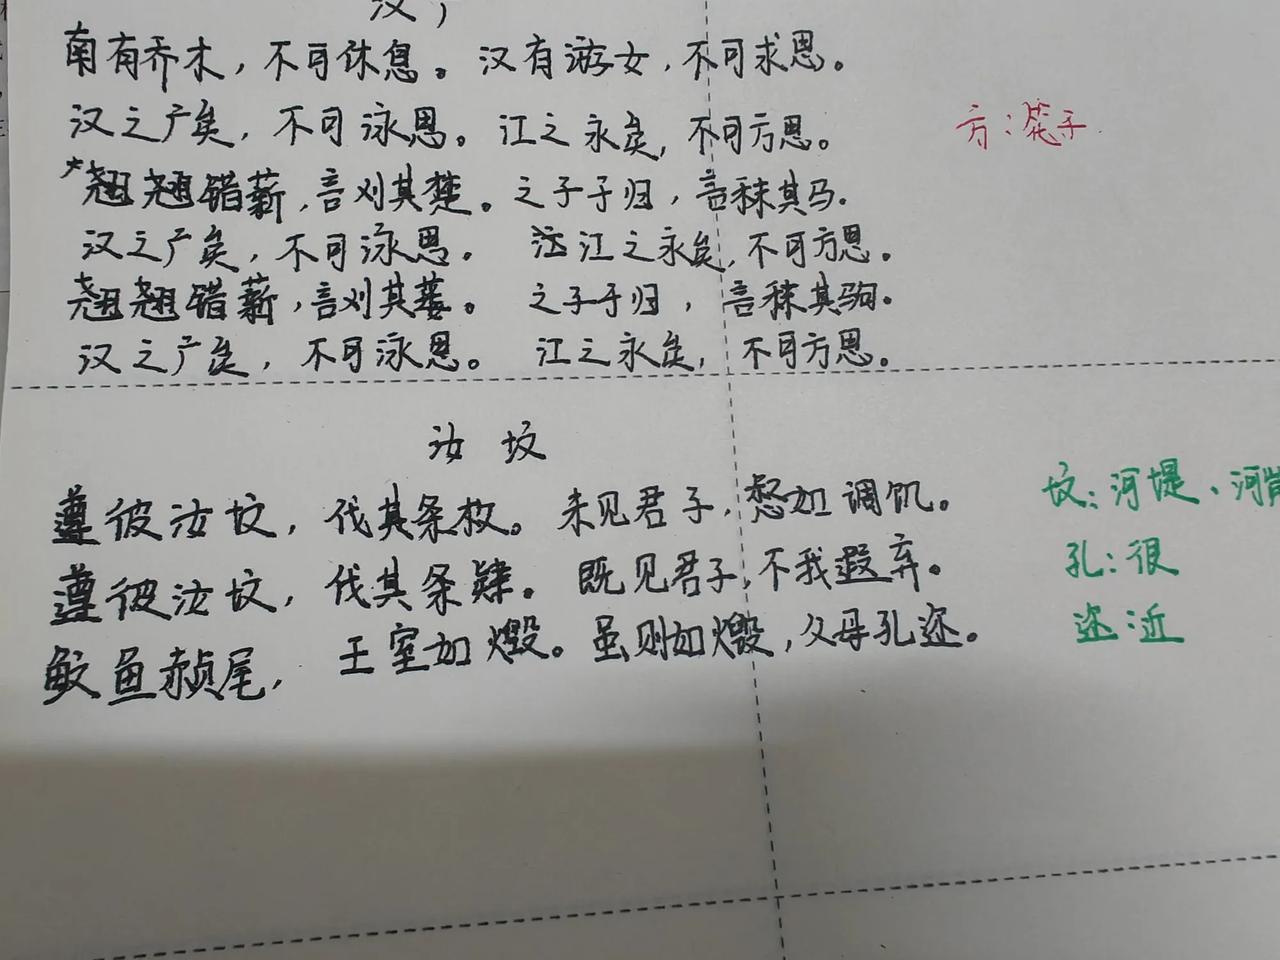 汉广
南有乔木，不可休息。汉有游女，不可求思。
汉之广矣，不可泳思。江之永矣，不可方思。 方：筏子
*翘翘错薪，言刈其楚。之子于归，言秣其马。
汉之广矣，不可泳思。江之永矣，不可方思。
翘翘错薪，言刈其蒌。之子于归，言秣其驹。
汉之广矣，不可泳思。江之永矣，不可方思。
汝坟
遵彼汝坟，伐其条枚。未见君子，惄如调饥。 坟：河堤、河岸
遵彼汝坟，伐其条肄。既见君子，不我遐弃。 孔：很
鲂鱼赪尾，王室如燬。虽则如燬，父母孔迩。 迩：近